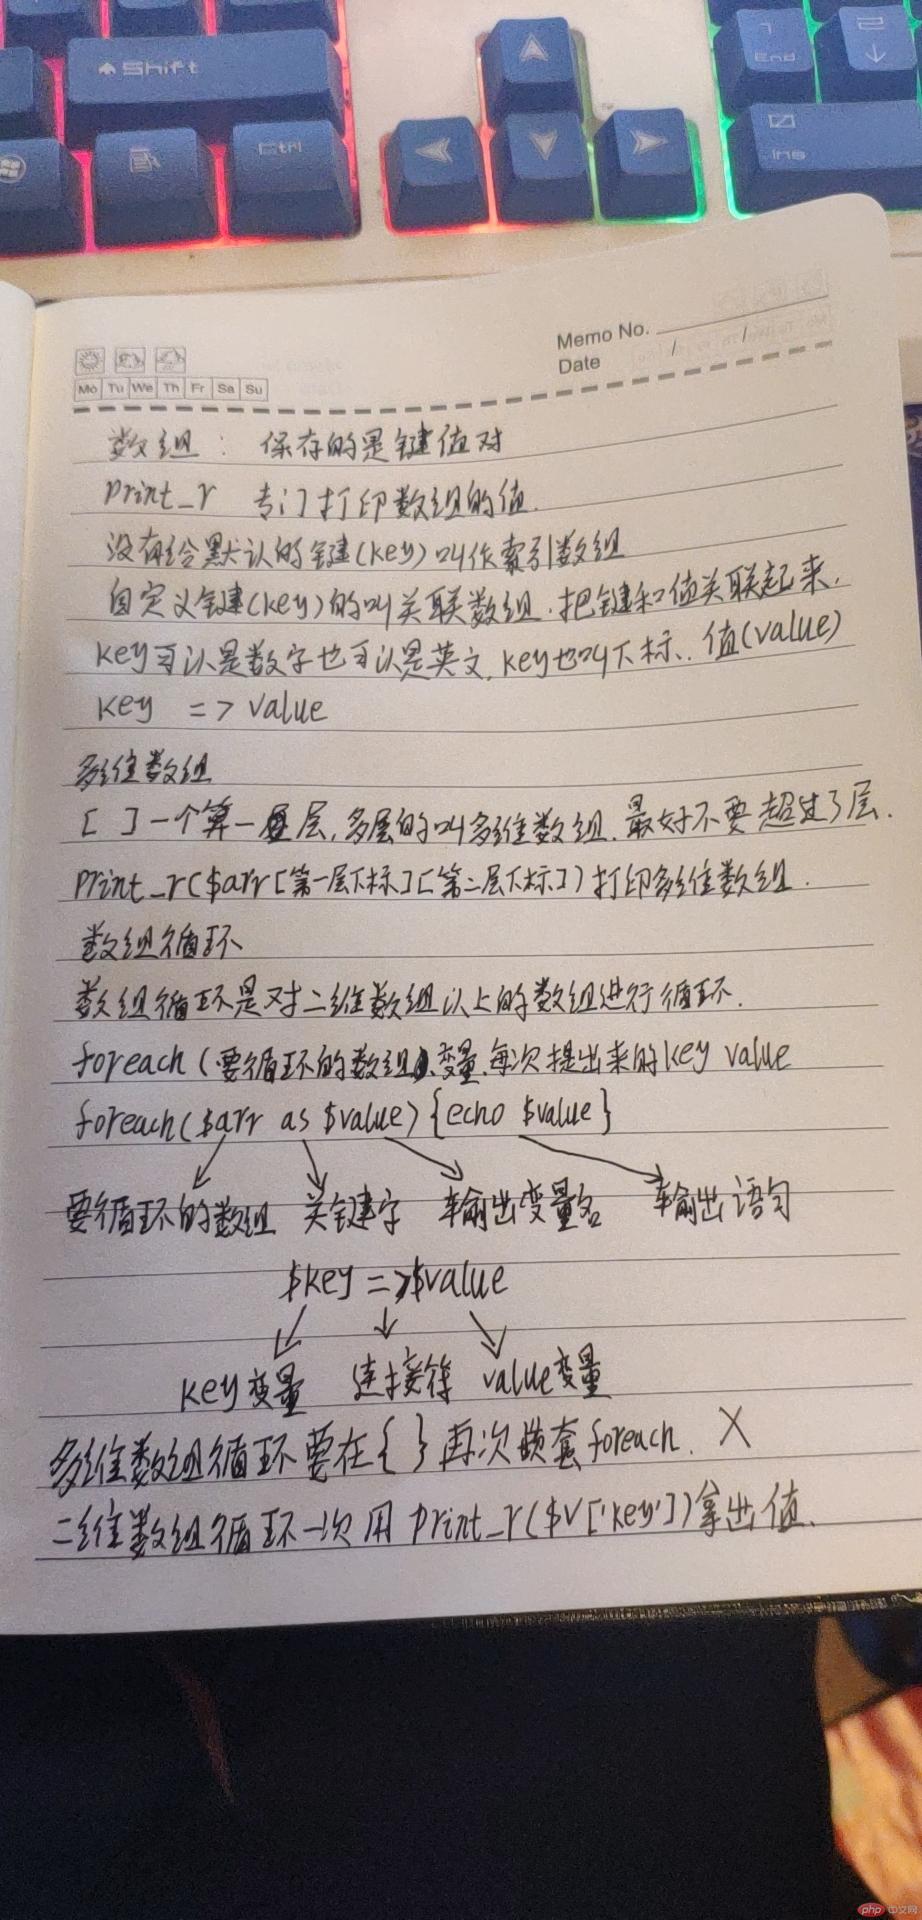 Shift
Ctrl
End
Ins
Memo No.
Date / /
Mo Tu We Th Fr Sa Su
数组：保存的是键值对
print_r 专门打印数组的值.
没有给默认的键(key)叫作索引数组
自定义键(key)的叫关联数组.把键和值关联起来.
key可以是数字也可以是英文.key也叫下标.值(value)
key => value
多维数组
[ ]一个算一层,多层的叫多维数组.最好不要超过3层.
print_r($arr[第一层下标][第二层下标])打印多维数组.
数组循环
数组循环是对二维数组以上的数组进行循环.
foreach(要循环的数组、变量.每次提出来的key value
foreach($arr as $value){echo $value}
要循环的数组 关键字 输出变量名 输出语句
$key =>$value
key变量 连接符 value变量
多维数组循环要在{ }再次嵌套foreach. X
二维数组循环一次用print_r($v['key'])拿出值.
php 中文网